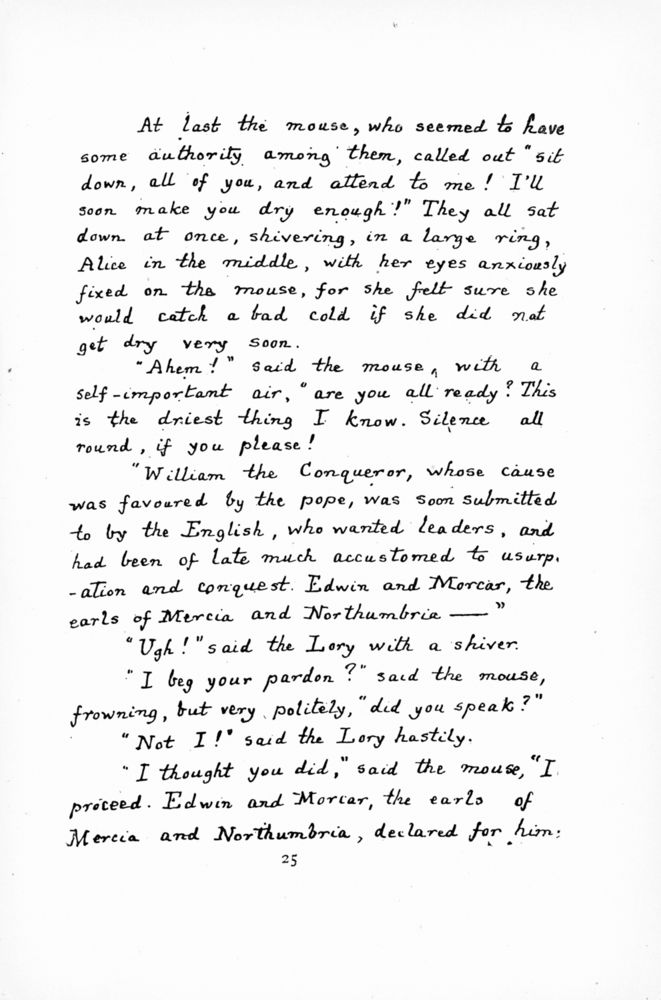 At last the mouse, who seemed to have
some authority among them, called out "sit
down, all of you, and attend to me! I'll
soon make you dry enough!" They all sat
down at once, shivering, in a large ring,
Alice in the middle, with her eyes anxiously
fixed on the mouse, for she felt sure she
would catch a bad cold if she did not
get dry very soon.
"Ahem!" said the mouse, with a
self-important air, "are you all ready? This
is the driest thing I know. Silence all
round, if you please!
"William the Conqueror, whose cause
was favoured by the pope, was soon submitted
to by the English, who wanted leaders, and
had been of late much accustomed to usurp-
-ation and conquest. Edwin and Morcar, the
earls of Mercia and Northumbria —"
"Ugh!" said the Lory with a shiver.
"I beg your pardon?" said the mouse,
frowning, but very politely, "did you speak?"
"Not I!" said the Lory hastily.
"I thought you did," said the mouse, "I
proceed. Edwin and Morcar, the earls of
Mercia and Northumbria, declared for him;
25